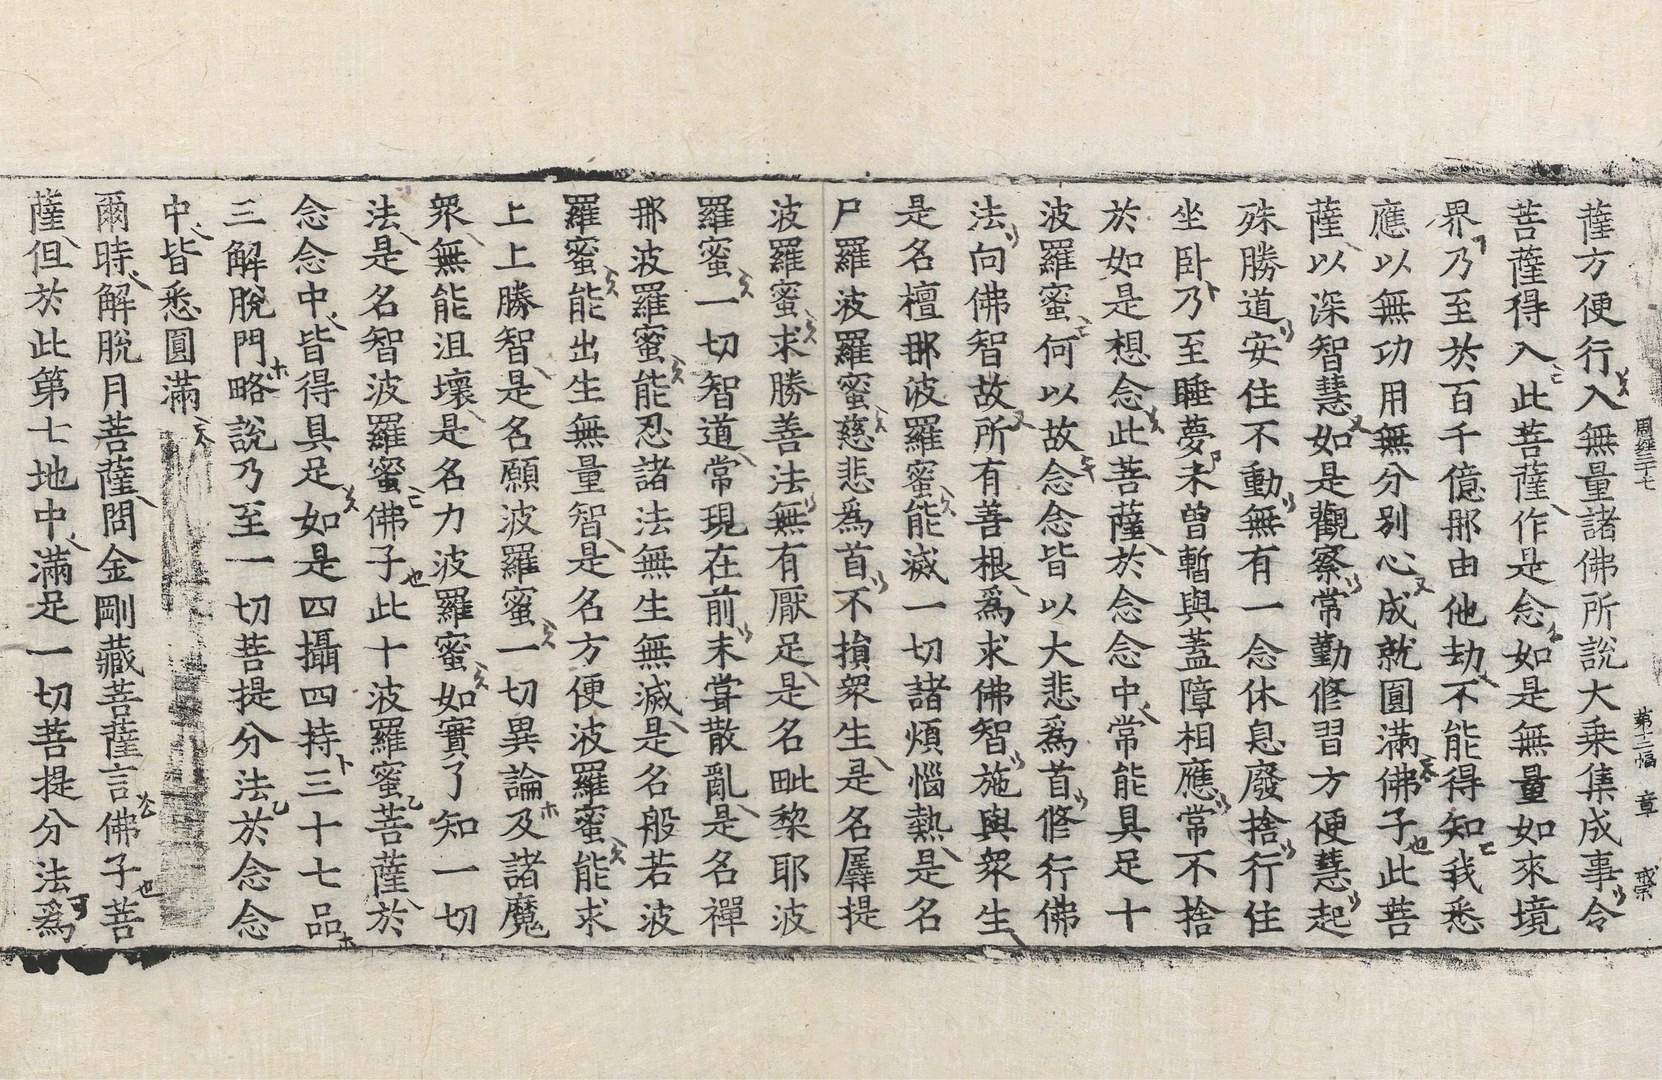 周經三十七 第十二幅 章 戒崇
薩方便行入無量諸佛所說大乘集成事令
菩薩得入此菩薩作是念如是無量如來境
界乃至於百千億那由他劫不能得知我悉
應以無功用無分別心成就圓滿佛子此菩
薩以深智慧如是觀察常勤修習方便慧起
殊勝道安住不動無有一念休息廢捨行住
坐卧乃至睡夢未曾暫與蓋障相應常不捨
於如是想念此菩薩於念念中常能具足十
波羅蜜何以故念念皆以大悲爲首修行佛
法向佛智故所有善根爲求佛智施與衆生
是名檀那波羅蜜能滅一切諸煩惱熱是名
尸羅波羅蜜慈悲爲首不損衆生是名羼提
波羅蜜求勝善法無有厭足是名毗棃耶波
羅蜜一切智道常現在前未甞散亂是名禪
那波羅蜜能忍諸法無生無滅是名般若波
羅蜜能出生無量智是名方便波羅蜜能求
上上勝智是名願波羅蜜一切異論及諸魔
衆無能沮壞是名力波羅蜜如實了知一切
法是名智波羅蜜佛子此十波羅蜜菩薩於
念念中皆得具足如是四攝四持三十七品
三解脫門略說乃至一切菩提分法於念念
中皆悉圓滿
爾時解脫月菩薩問金剛藏菩薩言佛子菩
薩但於此第七地中滿足一切菩提分法爲